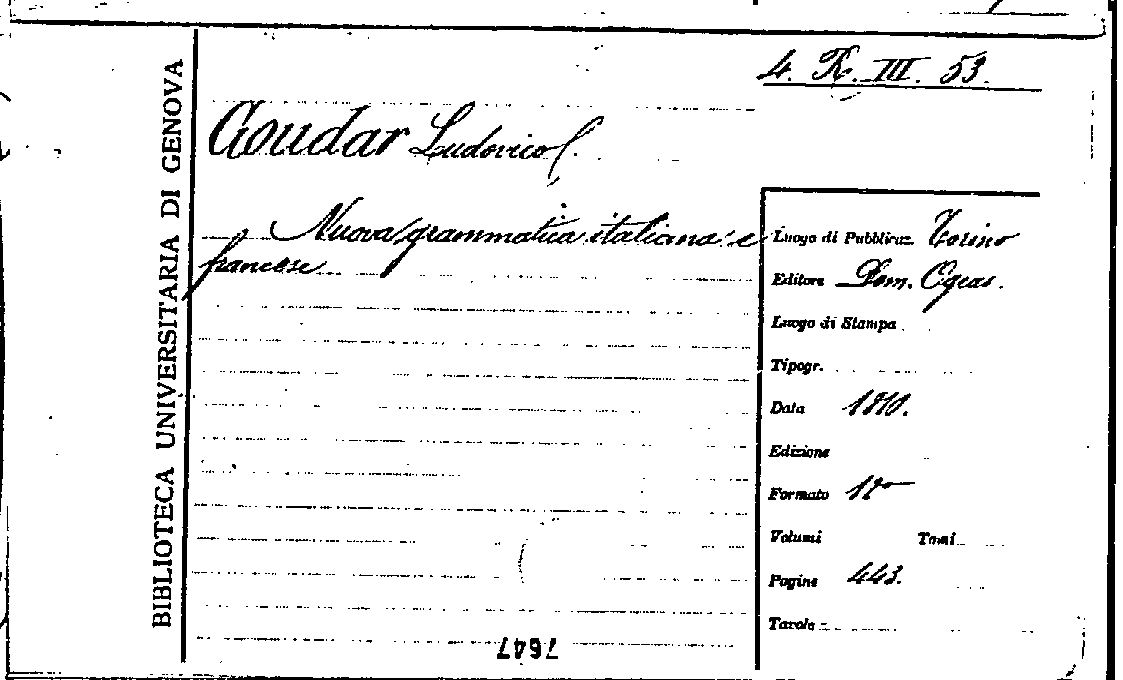 BIBLIOTECA UNIVERSITARIA DI GENOVA
4. R. III. 53.
Goudar Ludovico
Nuova grammatica italiana e
francese
Luogo di Pubblicaz. Torino
Editore Dom.
Luogo di Stampa
Tipogr.
Data 1810.
Edizione
Formato 12°
Volumi Tomi
Pagine 443.
Tavole
7647